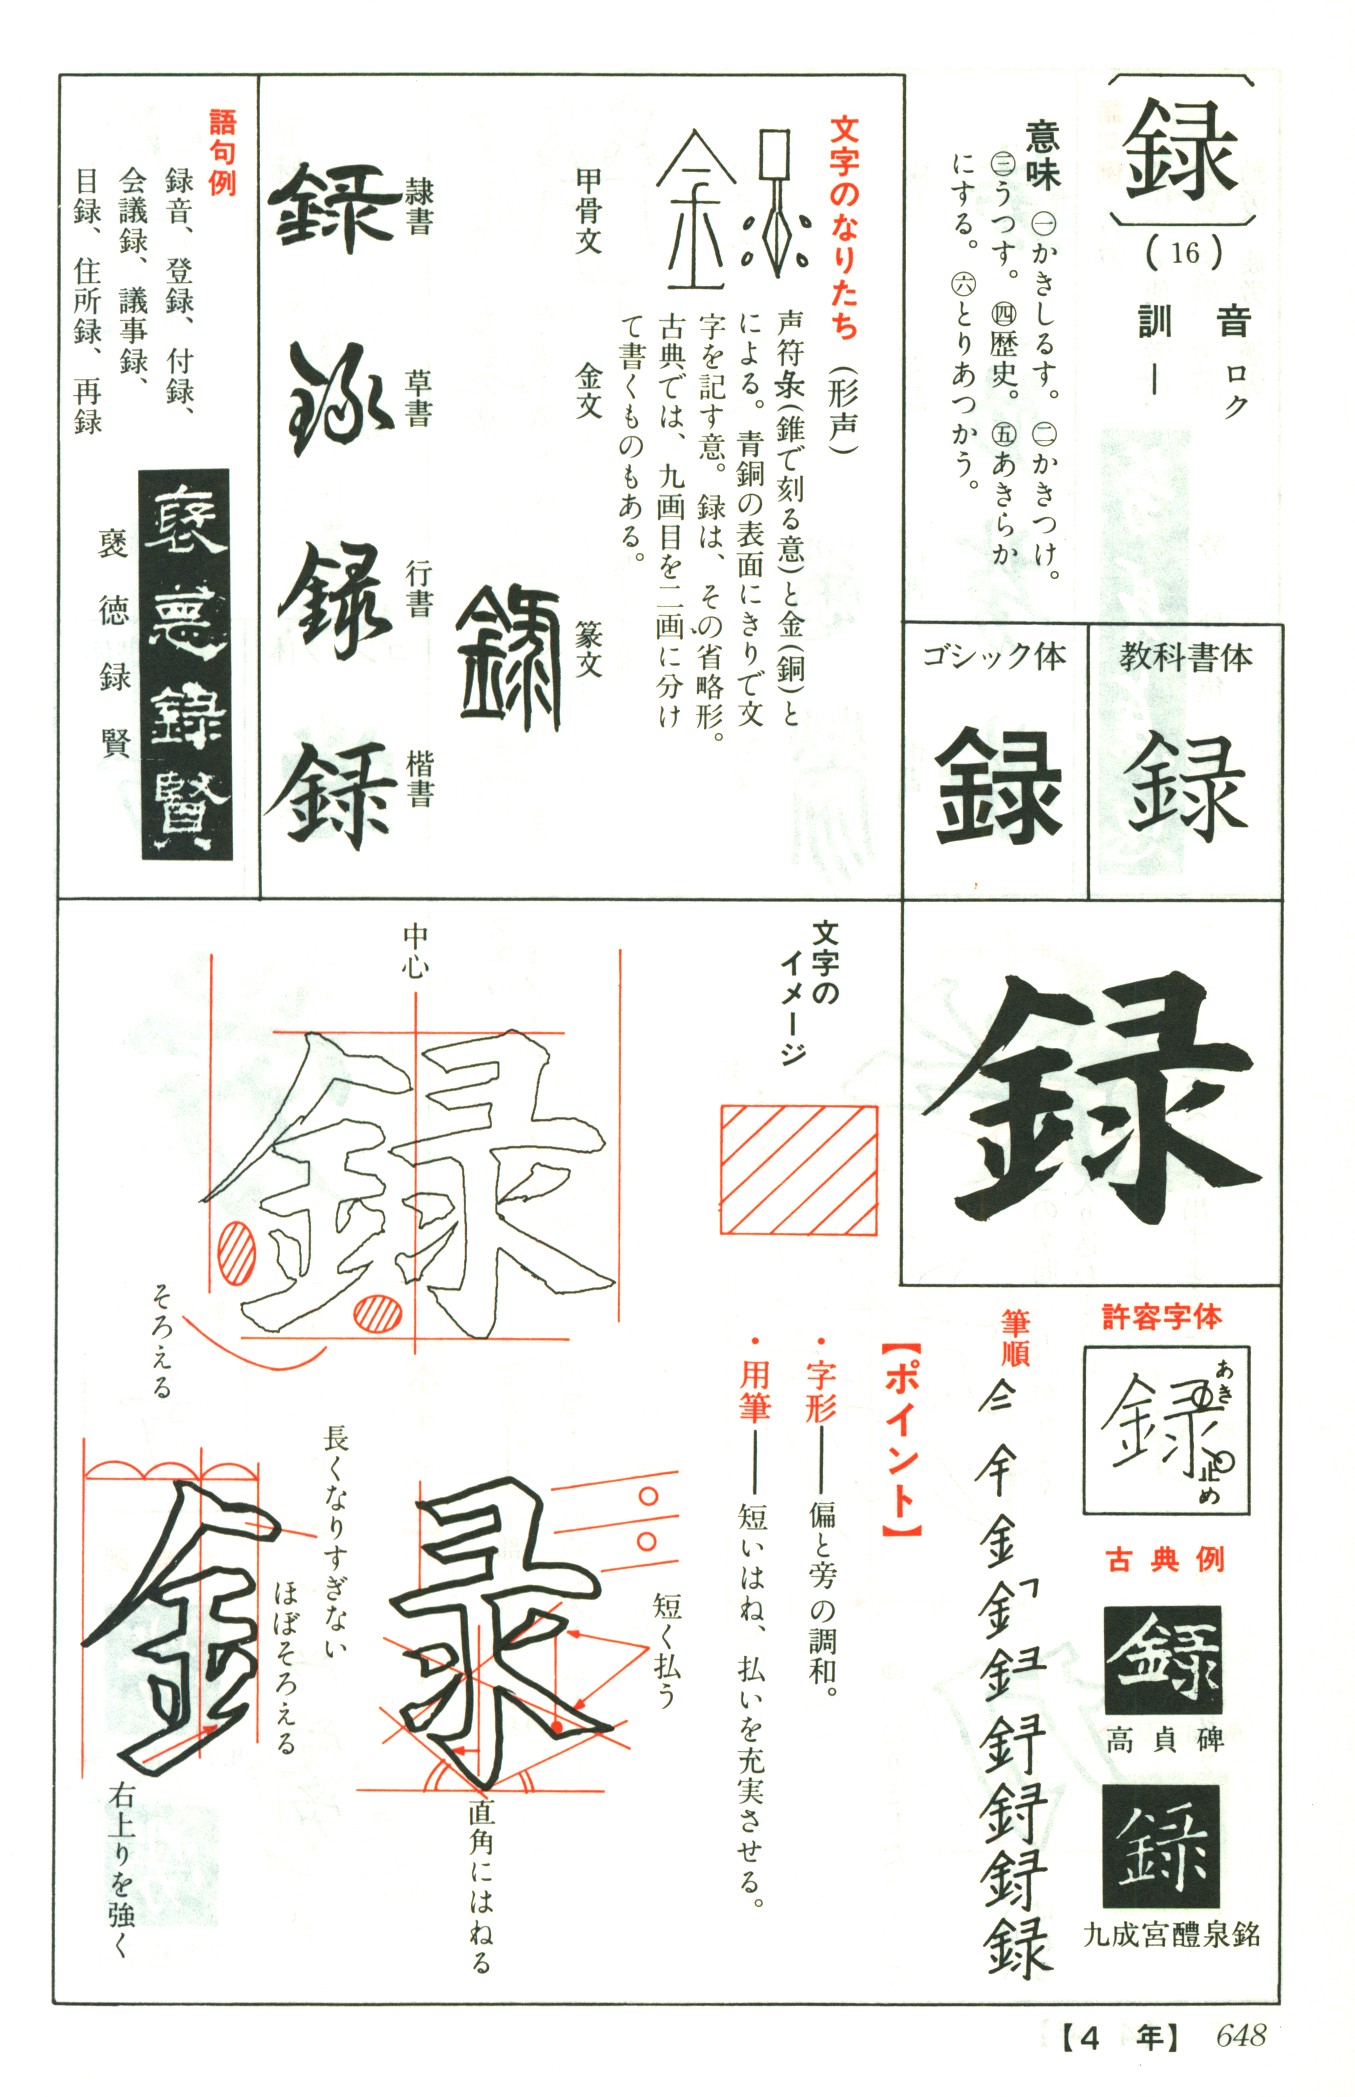 録
(16)
音 ロク
訓 ―
意味 ㊀かきしるす。㊁かきつけ。
㊂うつす。㊃歴史。㊄あきらか
にする。㊅とりあつかう。
教科書体
録
ゴシック体
録
文字のなりたち（形声）
声符彔（錐で刻る意）と金（銅）と
による。青銅の表面にきりで文
字を記す意。録は、その省略形。
古典では、九画目を二画に分け
て書くものもある。
甲骨文
金文
篆文
録
隷書
録
草書
録
行書
録
楷書
録
語句例
録音、登録、付録、
会議録、議事録、
目録、住所録、再録
褒徳録賢
褒徳録賢
録
許容字体
録
あき
止め
古典例
録
高貞碑
録
九成宮醴泉銘
筆順
録
文字の
イメージ
【ポイント】
・字形―偏と旁の調和。
・用筆―短いはね、払いを充実させる。
中心
録
そろえる
短く払う
直角にはねる
長くなりすぎない
ほぼそろえる
右上りを強く
【4 年】 648